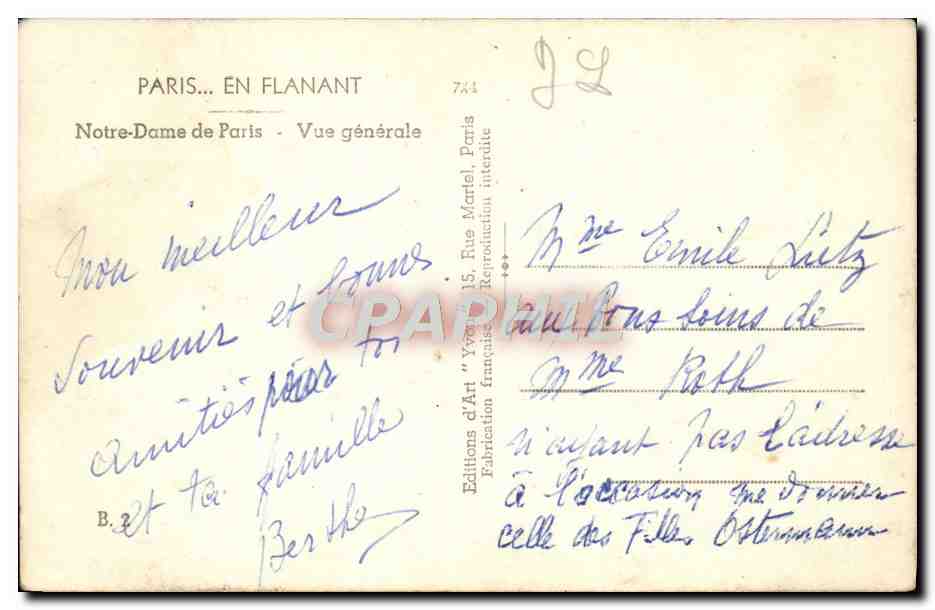 PARIS... EN FLANANT
Notre-Dame de Paris - Vue générale
Mon meilleur
souvenir et bonnes
amitiés pour toi
et ta famille
Berthe
B. 2
724
Editions d'Art "Yvon" 15, Rue Martel, Paris
Fabrication française - Reproduction interdite
CPAPHIL
Mme Emile Lietz
aux bons soins de
Mme Roth
n'ayant pas l'adresse
à l'occasion me donner
celle des Filles Ostermann